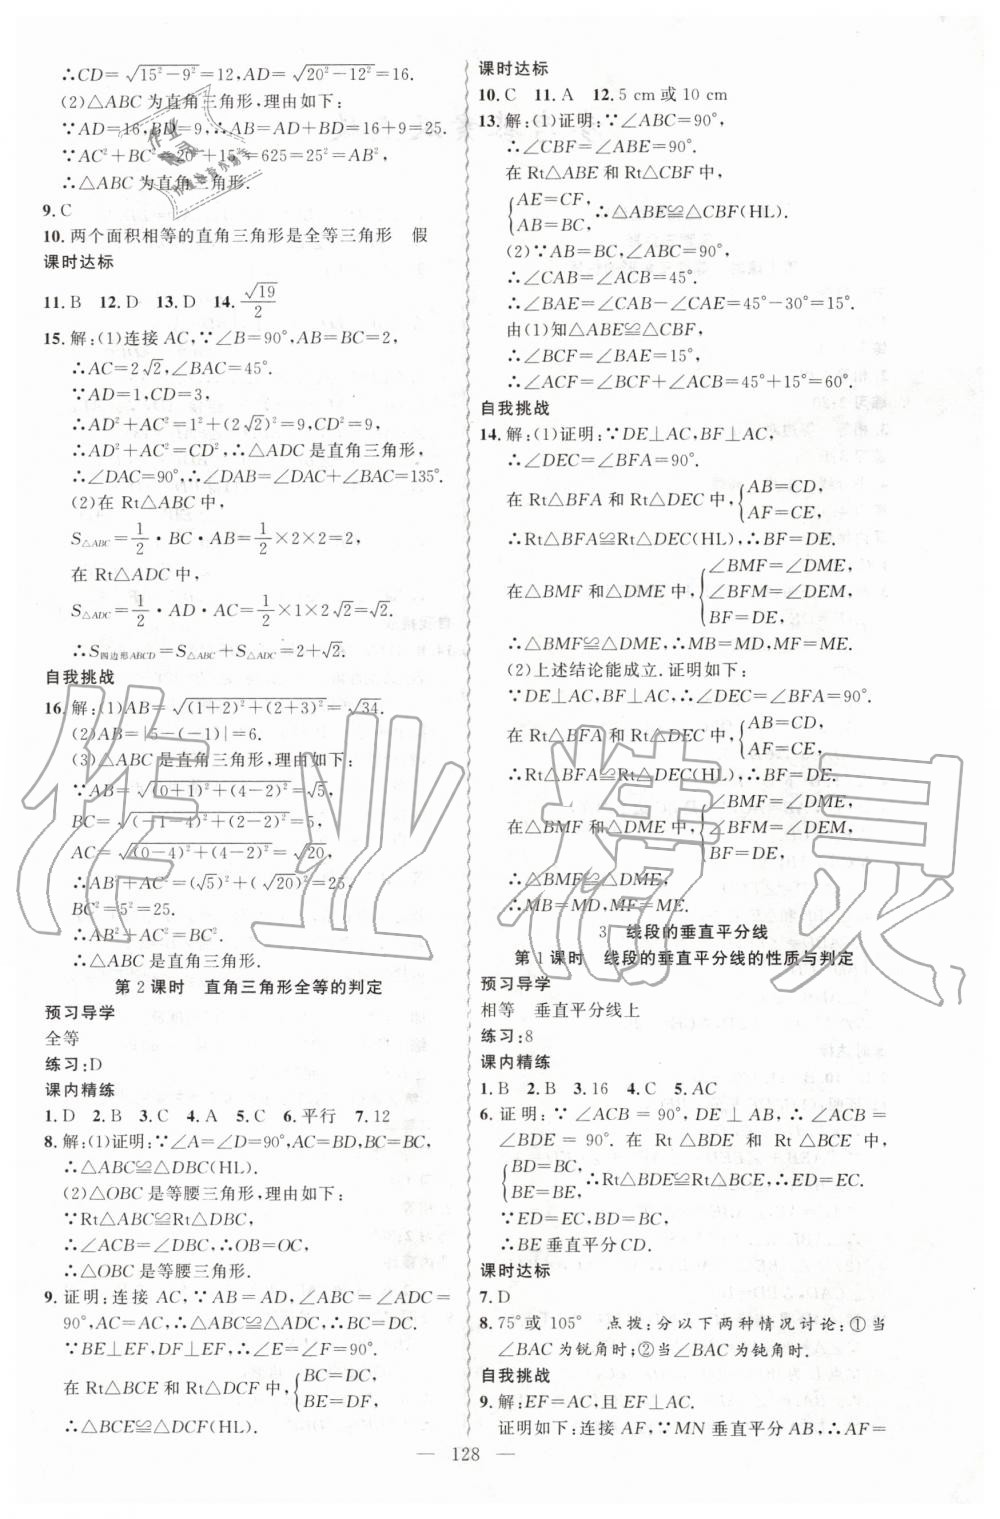 ∴CD=√(15²-9²)=12,AD=√(20²-12²)=16.
(2)△ABC 为直角三角形,理由如下:
∵AD=16,BD=9,∴AB=AD+BD=16+9=25.
∵AC²+BC²=20²+15²=625=25²=AB²,
∴△ABC 为直角三角形.
9. C
10. 两个面积相等的直角三角形是全等三角形 假
课时达标
11. B 12. D 13. D 14. √19/2
15. 解:(1)连接 AC,∵∠B=90°,AB=BC=2,
∴AC=2√2,∠BAC=45°.
∵AD=1,CD=3,
∴AD²+AC²=1²+(2√2)²=9,CD²=9,
∴AD²+AC²=CD²,∴△ADC 是直角三角形,
∴∠DAC=90°,∴∠DAB=∠DAC+∠BAC=135°.
(2)在 Rt△ABC 中,
S△ABC=1/2·BC·AB=1/2×2×2=2,
在 Rt△ADC 中,
S△ADC=1/2·AD·AC=1/2×1×2√2=√2.
∴S四边形ABCD=S△ABC+S△ADC=2+√2.
自我挑战
16. 解:(1)AB=√((1+2)²+(2+3)²)=√34.
(2)AB=|5-(-1)|=6.
(3)△ABC 是直角三角形,理由如下:
∵AB=√((0+1)²+(4-2)²)=√5,
BC=√((-1-4)²+(2-2)²)=5,
AC=√((0-4)²+(4-2)²)=√20,
∴AB²+AC²=(√5)²+(√20)²=25,
BC²=5²=25.
∴AB²+AC²=BC².
∴△ABC 是直角三角形.
第 2 课时 直角三角形全等的判定
预习导学
全等
练习:D
课内精练
1. D 2. B 3. C 4. A 5. C 6. 平行 7. 12
8. 解:(1)证明:∵∠A=∠D=90°,AC=BD,BC=BC,
∴△ABC≌△DBC(HL).
(2)△OBC 是等腰三角形,理由如下:
∵Rt△ABC≌Rt△DBC,
∴∠ACB=∠DBC,∴OB=OC,
∴△OBC 是等腰三角形.
9. 证明:连接 AC,∵AB=AD,∠ABC=∠ADC=
90°,AC=AC,∴△ABC≌△ADC,∴BC=DC.
∵BE⊥EF,DF⊥EF,∴∠E=∠F=90°.
在 Rt△BCE 和 Rt△DCF 中,{BC=DC,
BE=DF,
∴△BCE≌△DCF(HL).
课时达标
10. C 11. A 12. 5 cm 或 10 cm
13. 解:(1)证明:∵∠ABC=90°,
∴∠CBF=∠ABE=90°.
在 Rt△ABE 和 Rt△CBF 中,
{AE=CF,
AB=BC, ∴△ABE≌△CBF(HL).
(2)∵AB=BC,∠ABC=90°,
∴∠CAB=∠ACB=45°.
∴∠BAE=∠CAB-∠CAE=45°-30°=15°.
由(1)知△ABE≌△CBF,
∴∠BCF=∠BAE=15°,
∴∠ACF=∠BCF+∠ACB=45°+15°=60°.
自我挑战
14. 解:(1)证明:∵DE⊥AC,BF⊥AC,
∴∠DEC=∠BFA=90°.
在 Rt△BFA 和 Rt△DEC 中,{AB=CD,
AF=CE,
∴Rt△BFA≌Rt△DEC(HL),∴BF=DE.
在△BMF 和△DME 中,{∠BMF=∠DME,
∠BFM=∠DEM,
BF=DE,
∴△BMF≌△DME,∴MB=MD,MF=ME.
(2)上述结论能成立.证明如下:
∵DE⊥AC,BF⊥AC,∴∠DEC=∠BFA=90°.
在 Rt△BFA 和 Rt△DEC 中,{AB=CD,
AF=CE,
∴Rt△BFA≌Rt△DEC(HL),∴BF=DE.
在△BMF 和△DME 中,{∠BMF=∠DME,
∠BFM=∠DEM,
BF=DE,
∴△BMF≌△DME.
∴MB=MD,MF=ME.
3 线段的垂直平分线
第 1 课时 线段的垂直平分线的性质与判定
预习导学
相等 垂直平分线上
练习:8
课内精练
1. B 2. B 3. 16 4. C 5. AC
6. 证明:∵∠ACB = 90°, DE⊥AB, ∴∠ACB =
∠BDE = 90°. 在 Rt△BDE 和 Rt△BCE 中,
{BD=BC,
BE=BE, ∴Rt△BDE≌Rt△BCE,∴ED=EC.
∵ED=EC,BD=BC,
∴BE 垂直平分 CD.
课时达标
7. D
8. 75°或 105° 点拨:分以下两种情况讨论:①当
∠BAC 为锐角时;②当∠BAC 为钝角时.
自我挑战
9. 解:EF=AC,且 EF⊥AC.
证明如下:连接 AF,∵MN 垂直平分 AB,∴AF=
— 128 —
作业精灵